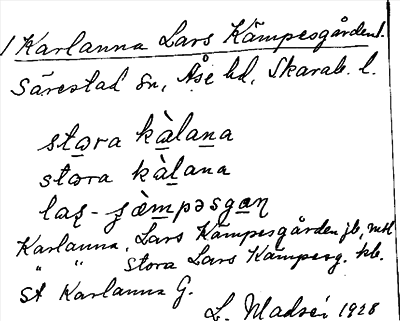 1 Karlanna Lars Kämpesgården 1.
Särestad sn, Åse hd, Skarab. l.
stɷra kàlana
stɷra kàlana
las̨ - ʂæ̀mpəsgaɳ
Karlanna, Lars Kämpesgården jb, mtl
" " Stora Lars Kämpesg. kb.
St Karlanna G.
L. Madsén 1928